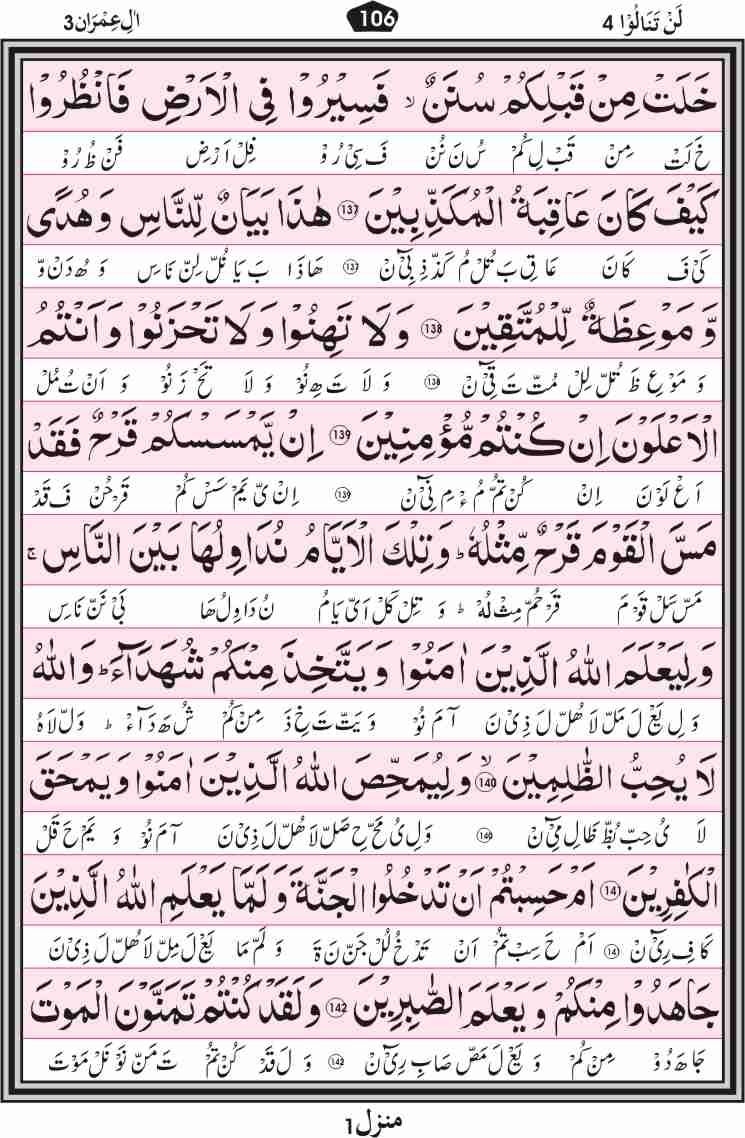 لَنْ تَنَالُوْا 4 106 اٰلِ عِمْرَان 3
خَلَتْ مِنْ قَبْلِكُمْ سُنَنٌ ۙ فَسِيْرُوْا فِي الْاَرْضِ فَانْظُرُوْا
خَ لَتْ مِنْ قَبْ لِ كُمْ سُ نَ نُنْ فَ سِیْ رُوْ فِلْ اَرْضِ فَنْ ظُ رُوْ
كَيْفَ كَانَ عَاقِبَةُ الْمُكَذِّبِيْنَ ۝137 هٰذَا بَيَانٌ لِّلنَّاسِ وَهُدًى
كَیْ فَ كَانَ عَا قِ بَ تُلْ مُ كَذّ ذِ بِیْٓ نْ 137 هَاذَا بَ يَا نُلّ لِنّ نَاسِ وَ هُ دَنْ وّ
وَّ مَوْعِظَةٌ لِّلْمُتَّقِيْنَ ۝138 وَلَا تَهِنُوْا وَلَا تَحْزَنُوْا وَاَنْتُمُ
وَ مَوْ عِ ظَ تُلّ لِلْ مُتّ تَ قِیْٓ نْ 138 وَ لَا تَ هِ نُوْ وَ لَا تَحْ زَ نُوْ وَ اَنْ تُ مُلْ
الْاَعْلَوْنَ اِنْ كُنْتُمْ مُّؤْمِنِيْنَ ۝139 اِنْ يَّمْسَسْكُمْ قَرْحٌ فَقَدْ
اَعْ لَوْنَ اِنْ كُنْ تُمّْ مُ ءْ مِ نِیْٓ نْ 139 اِنْ یّ یَمْ سَسْ كُمْ قَرْ حُنْ فَ قَدْ
مَسَّ الْقَوْمَ قَرْحٌ مِّثْلُهٗ ؕ وَتِلْكَ الْاَيَّامُ نُدَاوِلُهَا بَيْنَ النَّاسِ ۚ
مَسّ سَلْ قَوْ مَ قَرْ حُمّْ مِثْ لُهْ ؕ وَ تِلْ كَلْ اَیّ يَا مُ نُ دَا وِ لُ هَا بَیْ نَنّ نَاسِ
وَلِيَعْلَمَ اللّٰهُ الَّذِيْنَ اٰمَنُوْا وَيَتَّخِذَ مِنْكُمْ شُهَدَآءَ ؕ وَاللّٰهُ
وَ لِ یَعْ لَ مَلّ لَا هُلّ لَ ذِیْ نَ آ مَ نُوْ وَ یَتّ تَ خِ ذَ مِنْ كُمْ شُ هَ دَآءْ ؕ وَلّ لَاهُ
لَا يُحِبُّ الظّٰلِمِيْنَ ۝140 ۙ وَلِيُمَحِّصَ اللّٰهُ الَّذِيْنَ اٰمَنُوْا وَيَمْحَقَ
لَا یُ حِبّ بُظّ ظَا لِ مِیْٓ نْ 140 وَ لِ یُ مَحّ حِ صَلّ لَا هُلّ لَ ذِیْ نَ آ مَ نُوْ وَ یَمْ حَ قَلْ
الْكٰفِرِيْنَ ۝141 اَمْ حَسِبْتُمْ اَنْ تَدْخُلُوا الْجَنَّةَ وَلَمَّا يَعْلَمِ اللّٰهُ الَّذِيْنَ
كَا فِ رِیْٓ نْ 141 اَمْ حَ سِبْ تُمْ اَنْ تَدْ خُ لُلْ جَنّ نَ ةَ وَ لَمّْ مَا یَعْ لَ مِلّ لَا هُلّ لَ ذِیْ نَ
جَاهَدُوْا مِنْكُمْ وَيَعْلَمَ الصّٰبِرِيْنَ ۝142 وَلَقَدْ كُنْتُمْ تَمَنَّوْنَ الْمَوْتَ
جَا هَ دُوْ مِنْ كُمْ وَ یَعْ لَ مَصّ صَا بِ رِیْٓ نْ 142 وَ لَ قَدْ كُنْ تُمْ تَ مَنّ نَوْ نَلْ مَوْتَ
منزل 1